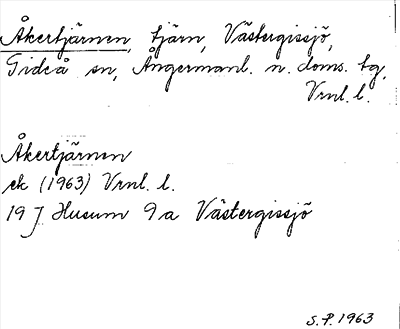 Åkertjärnen, tjärn, Västergissjö,
Gideå sn, Ångermanl. n. doms. tg,
Vrnl. l.
Åkertjärnen
ek (1963) Vrnl. l.
19 J Husum 9a Västergissjö
S.P. 1963